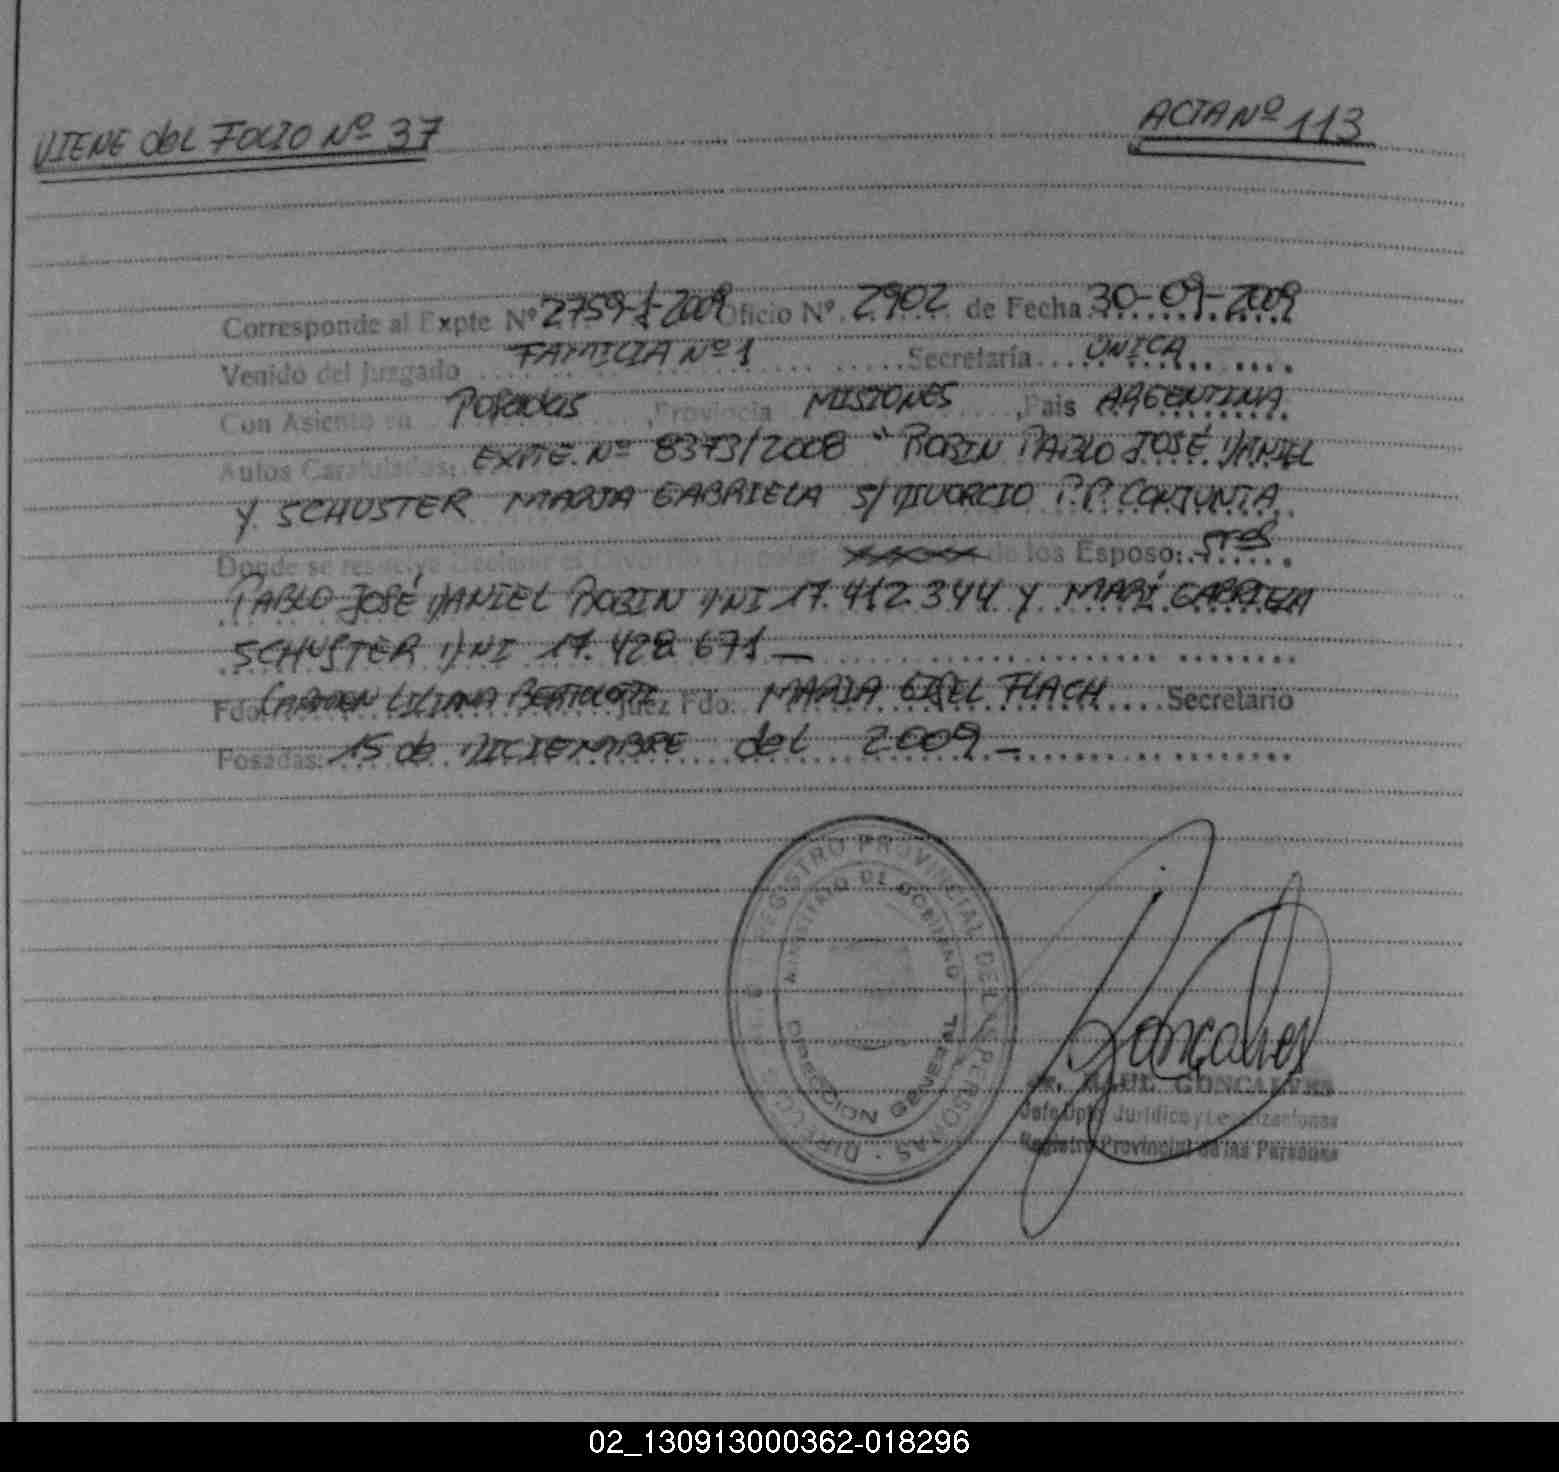 VIENE del FOLIO Nº 37
ACTA Nº 113
Corresponde al Expte Nº 2759-1-2009 Oficio Nº 2902 de Fecha 30-09-2009
Venido del Juzgado FAMILIA Nº 1 Secretaría ÚNICA
Con Asiento en Posadas, Provincia MISIONES, País ARGENTINA
Autos Caratulados: EXPTE. Nº 8373/2008 "ROBIN PABLO JOSÉ DANIEL
Y SCHUSTER MARIA GABRIELA S/ DIVORCIO P.P. CONJUNTA
Donde se resuelve declarar el Divorcio Vincular de los Esposo: Sres
PABLO JOSÉ DANIEL ROBIN DNI 17.412.344 Y MARÍ GABRIELA
SCHUSTER DNI 17.428.671 —
Fdo. CARMEN LILIANA Juez Fdo. MARIA FLACH Secretario
Posadas: 15 de DICIEMBRE del 2009 —
REGISTRO PROVINCIAL DE LAS PERSONAS
MINISTERIO DE GOBIERNO
DIRECCION GENERAL
Goncalves
DR. RAUL GONCALVES
Jefe Dpto Jurídico y Legalizaciones
Registro Provincial de las Personas
02_130913000362-018296